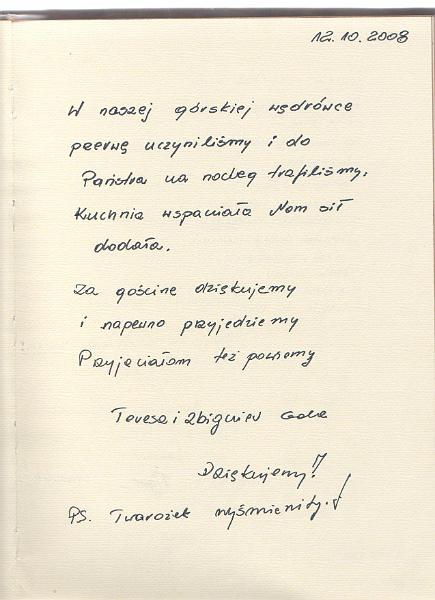 12.10.2008
W naszej górskiej wędrówce
przerwę uczyniliśmy i do
Państwa na nocleg trafiliśmy,
Kuchnia wspaniała Nam sił
dodała.
Za gościnę dziękujemy
i napewno przyjedziemy
Przyjaciołom też powiemy
Teresa i Zbigniew
Dziękujemy!!
PS. Twarożek wyśmienity.!